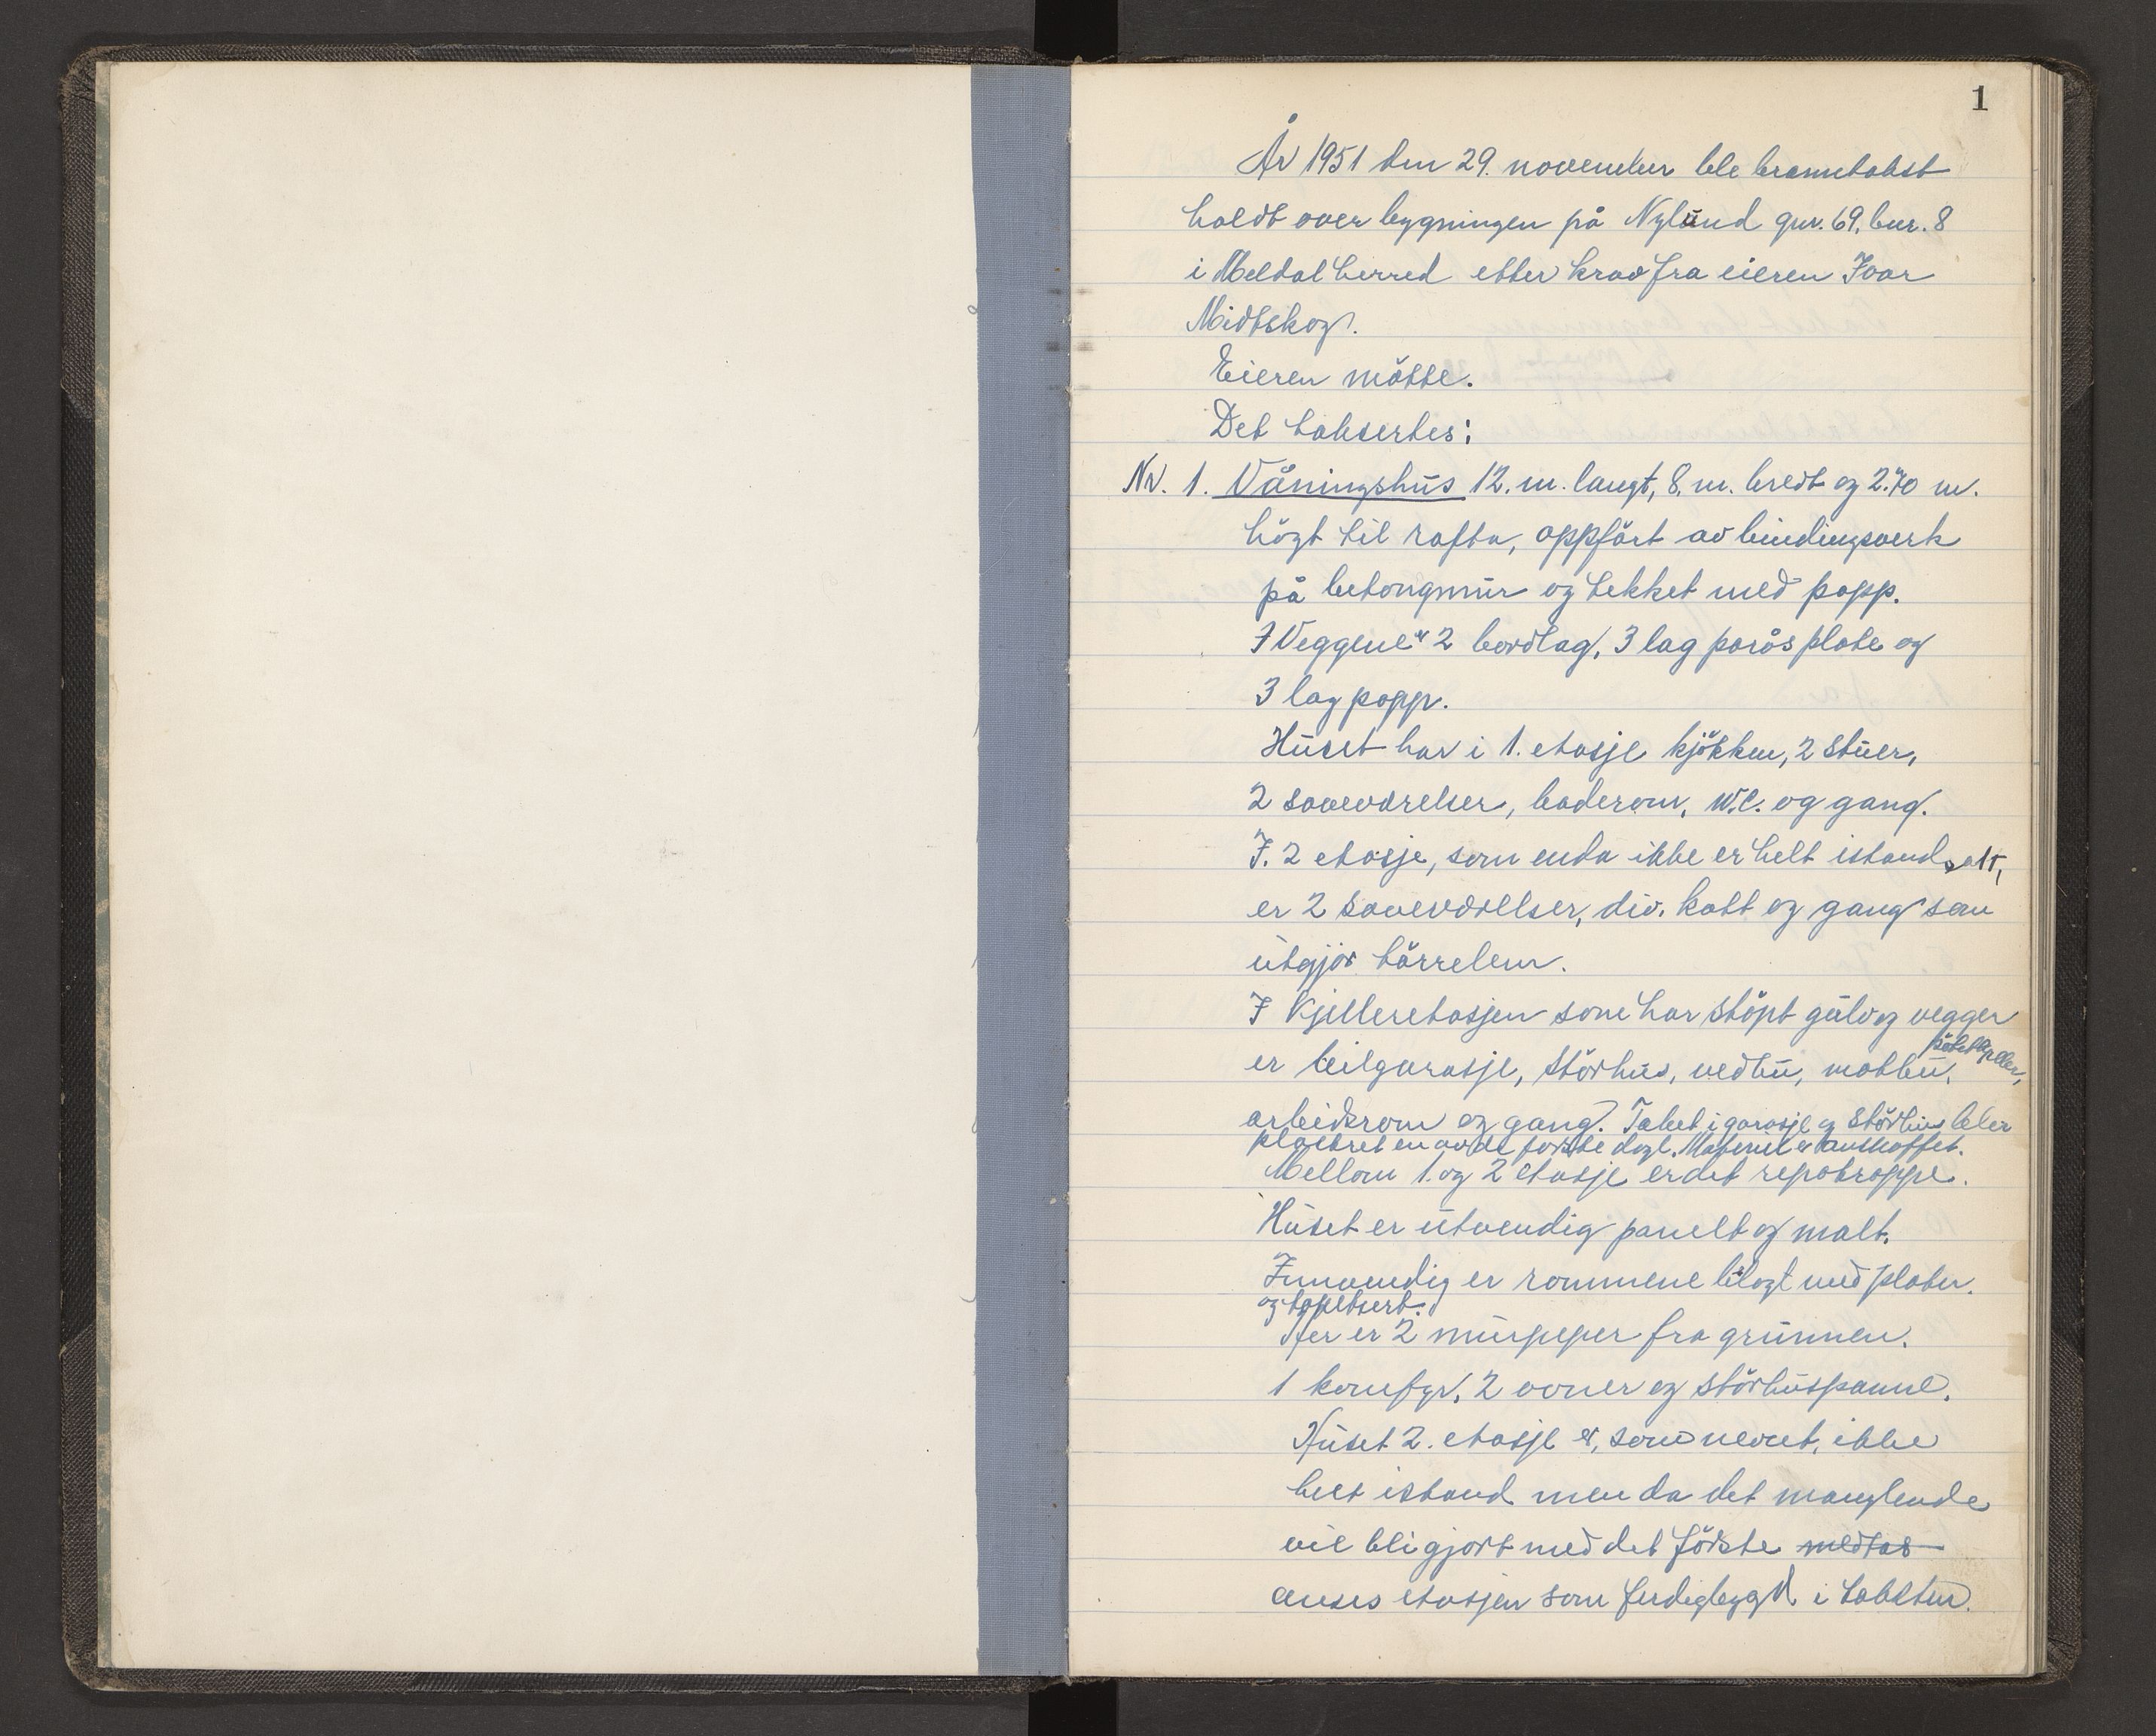 1
År 1951 den 29. november ble branntakst
holdt over bygningen på Nylund gnr. 69. bnr. 8
i Meldal herred etter krav fra eieren Ivar
Midtskog.
Eieren møtte.
Det taksertes:
Nr. 1. Våningshus 12. m. langt, 8. m. bredt og 2.70 m.
høgt til rafta, oppført av bindingsverk
på betongmur og tekket med papp.
I Veggene er 2 bordlag, 3 lag porøs plate og
3 lag papp.
Huset har i 1. etasje kjøkken, 2 stuer,
2 soveværelser, baderom, W.C. og gang.
I. 2 etasje, som enda ikke er helt istandsatt,
er 2 soveværelser, div. kott og gang som
utgjør tørrelem.
I Kjelleretasjen som har støpt gulv og vegger
er bilgarasje, störhus, vedbu, matbu, potetkjeller,
arbeidsrom og gang. Taket i garasje og störhus bler
plastret en av de første dage. Materiel er anskaffet.
Mellom 1. og 2 etasje er det repotrappe.
Huset er utvendig panelt og malt.
Innvendig er rommene bilagt med plater.
og tapetsert.
Her er 2 murpiper fra grunnen.
1 komfyr, 2 ovner og störhuspanne.
Huset 2. etasje er, som nevnt, ikke
helt istand men da det manglende
vil bli gjort med det første medtas
anses etasjen som ferdigbygd i taksten.